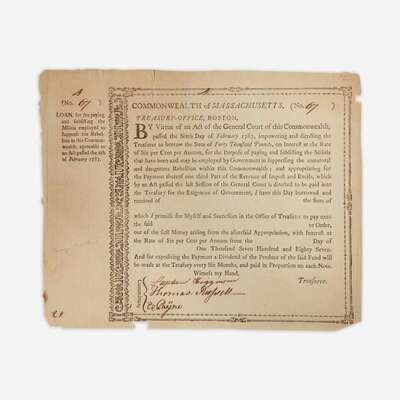 (No. 67 )
LOAN, for the paying
and subsisting the
Militia employed to
support the Rebel-
lion in this Common-
wealth, agreeable to
an Act passed the 6th
of February 1787.
COMMONWEALTH of MASSACHUSETTS, (No. 67 )
TREASURY-OFFICE, BOSTON,
BY Virtue of an Act of the General Court of this Commonwealth,
passed the Sixth Day of February 1787, impowering and directing the
Treasurer to borrow the Sum of Forty Thousand Pounds, on Interest at the Rate
of Six per Cent per Annum, for the Purpose of paying and subsisting the Militia
that have been and may be employed by Government in suppressing the unnatural
and dangerous Rebellion within this Commonwealth; and appropriating for
the Payment thereof one third Part of the Revenue of Impost and Excise, which
by an Act passed the last Session of the General Court is directed to be paid into
the Treasury for the Exigencies of Government, I have this Day borrowed and
received of the Sum of
which I promise for Myself and Successors in the Office of Treasurer to pay unto
the said or Order,
out of the first Money arising from the aforesaid Appropriation, with Interest at
the Rate of Six per Cent per Annum from the Day of
One Thousand Seven Hundred and Eighty Seven.
And for expediting the Payment a Dividend of the Produce of the said Fund will
be made at the Treasury every Six Months, and paid in Proportion on each Note.
Witness my Hand,
Treasurer.
Stephen Higginson
Thomas Russell